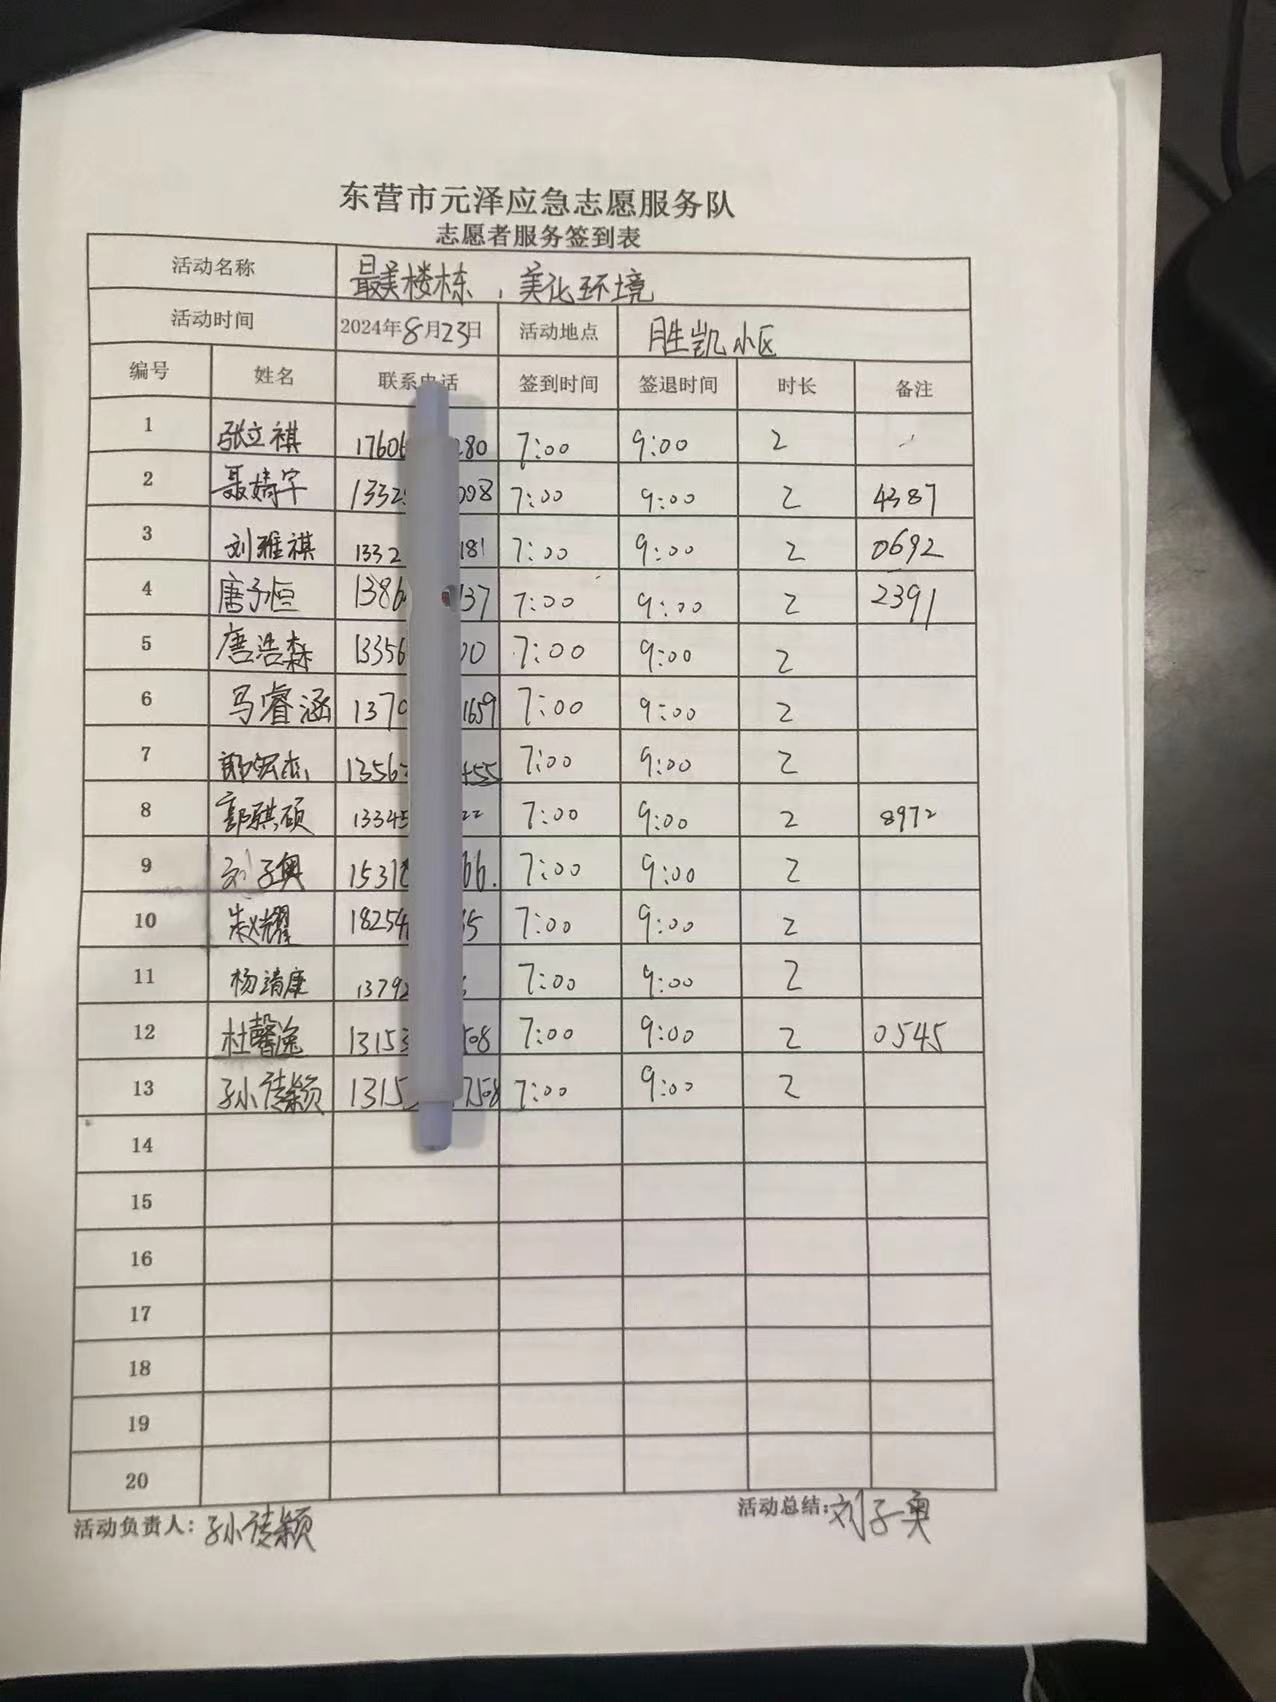 东营市元泽应急志愿服务队
志愿者服务签到表
活动名称 最美楼栋，美化环境
活动时间 2024年8月23日 活动地点 胜凯小区
编号 姓名 联系电话 签到时间 签退时间 时长 备注
1 张立祺 17606 280 7:00 9:00 2
2 聂婧宇 1332 008 7:00 9:00 2 4387
3 刘雅祺 1332 181 7:00 9:00 2 0692
4 唐予恒 1386 137 7:00 9:00 2 2391
5 唐浩森 13356 00 7:00 9:00 2
6 马睿涵 1370 1659 7:00 9:00 2
7 1356 455 7:00 9:00 2
8 郭骐硕 13345 22 7:00 9:00 2 8972
9 刘子奥 1531 66. 7:00 9:00 2
10 18254 35 7:00 9:00 2
11 杨靖康 13792 7:00 9:00 2
12 杜馨逸 13153 508 7:00 9:00 2 0545
13 孙绮颖 1315 7508 7:00 9:00 2
14
15
16
17
18
19
20
活动负责人：孙绮颖 活动总结：刘子奥